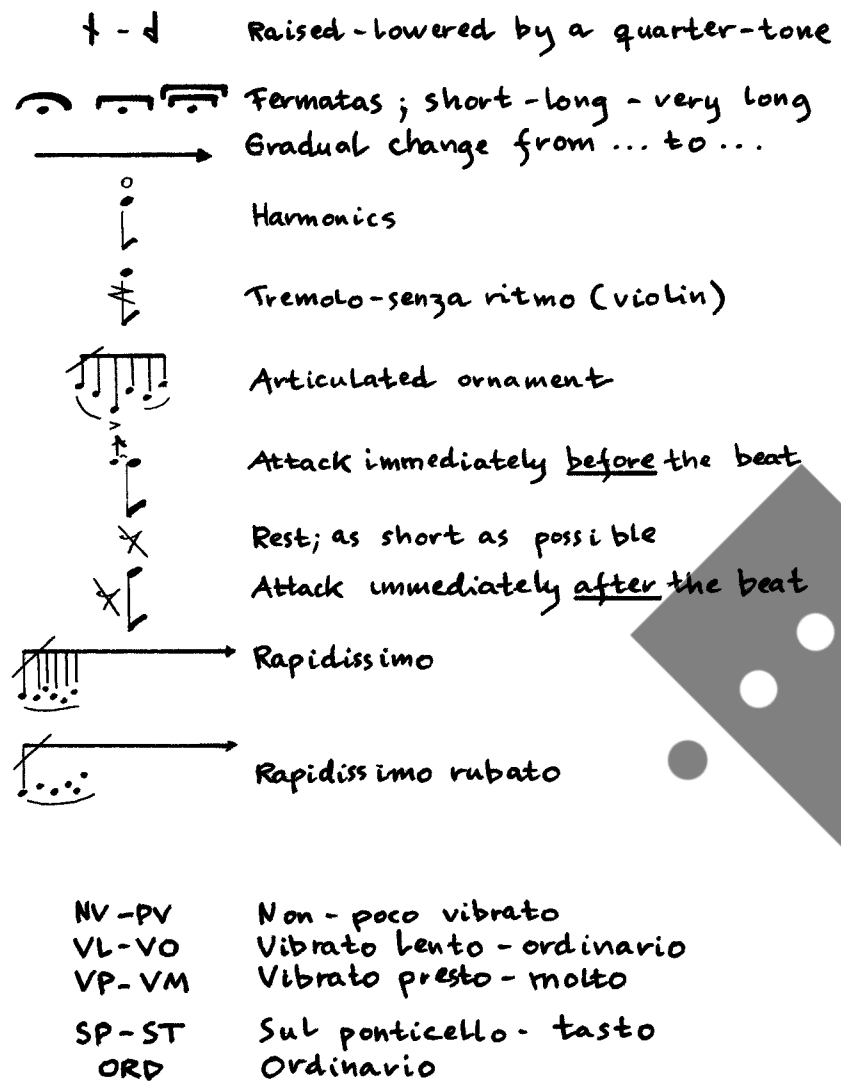 Raised-lowered by a quarter-tone
Fermatas; short-long-very long
Gradual change from ... to ...
Harmonics
Tremolo-senza ritmo (violin)
Articulated ornament
Attack immediately before the beat
Rest; as short as possible
Attack immediately after the beat
Rapidissimo
Rapidissimo rubato
NV-PV Non-poco vibrato
VL-VO Vibrato lento-ordinario
VP-VM Vibrato presto-molto
SP-ST Sul ponticello-tasto
ORD Ordinario